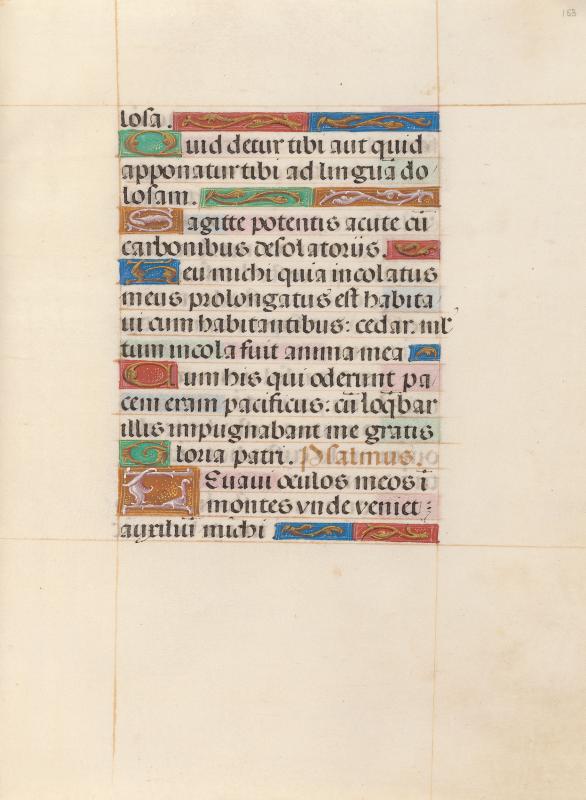 163
losa.
Quid detur tibi aut quid
apponatur tibi ad linguā do
losam.
Sagitte potentis acute cū
carbonibus desolatoriis.
Heu michi quia incolatus
meus prolongatus est habita
ui cum habitantibus: cedar. ml'
tum incola fuit anima mea
Cum his qui oderunt pa
cem eram pacificus: cū loq̄bar
illis impugnabant me gratis
Gloria patri. Psalmus.
Leuaui oculos meos ī
montes vnde veniet
auxiliū michi